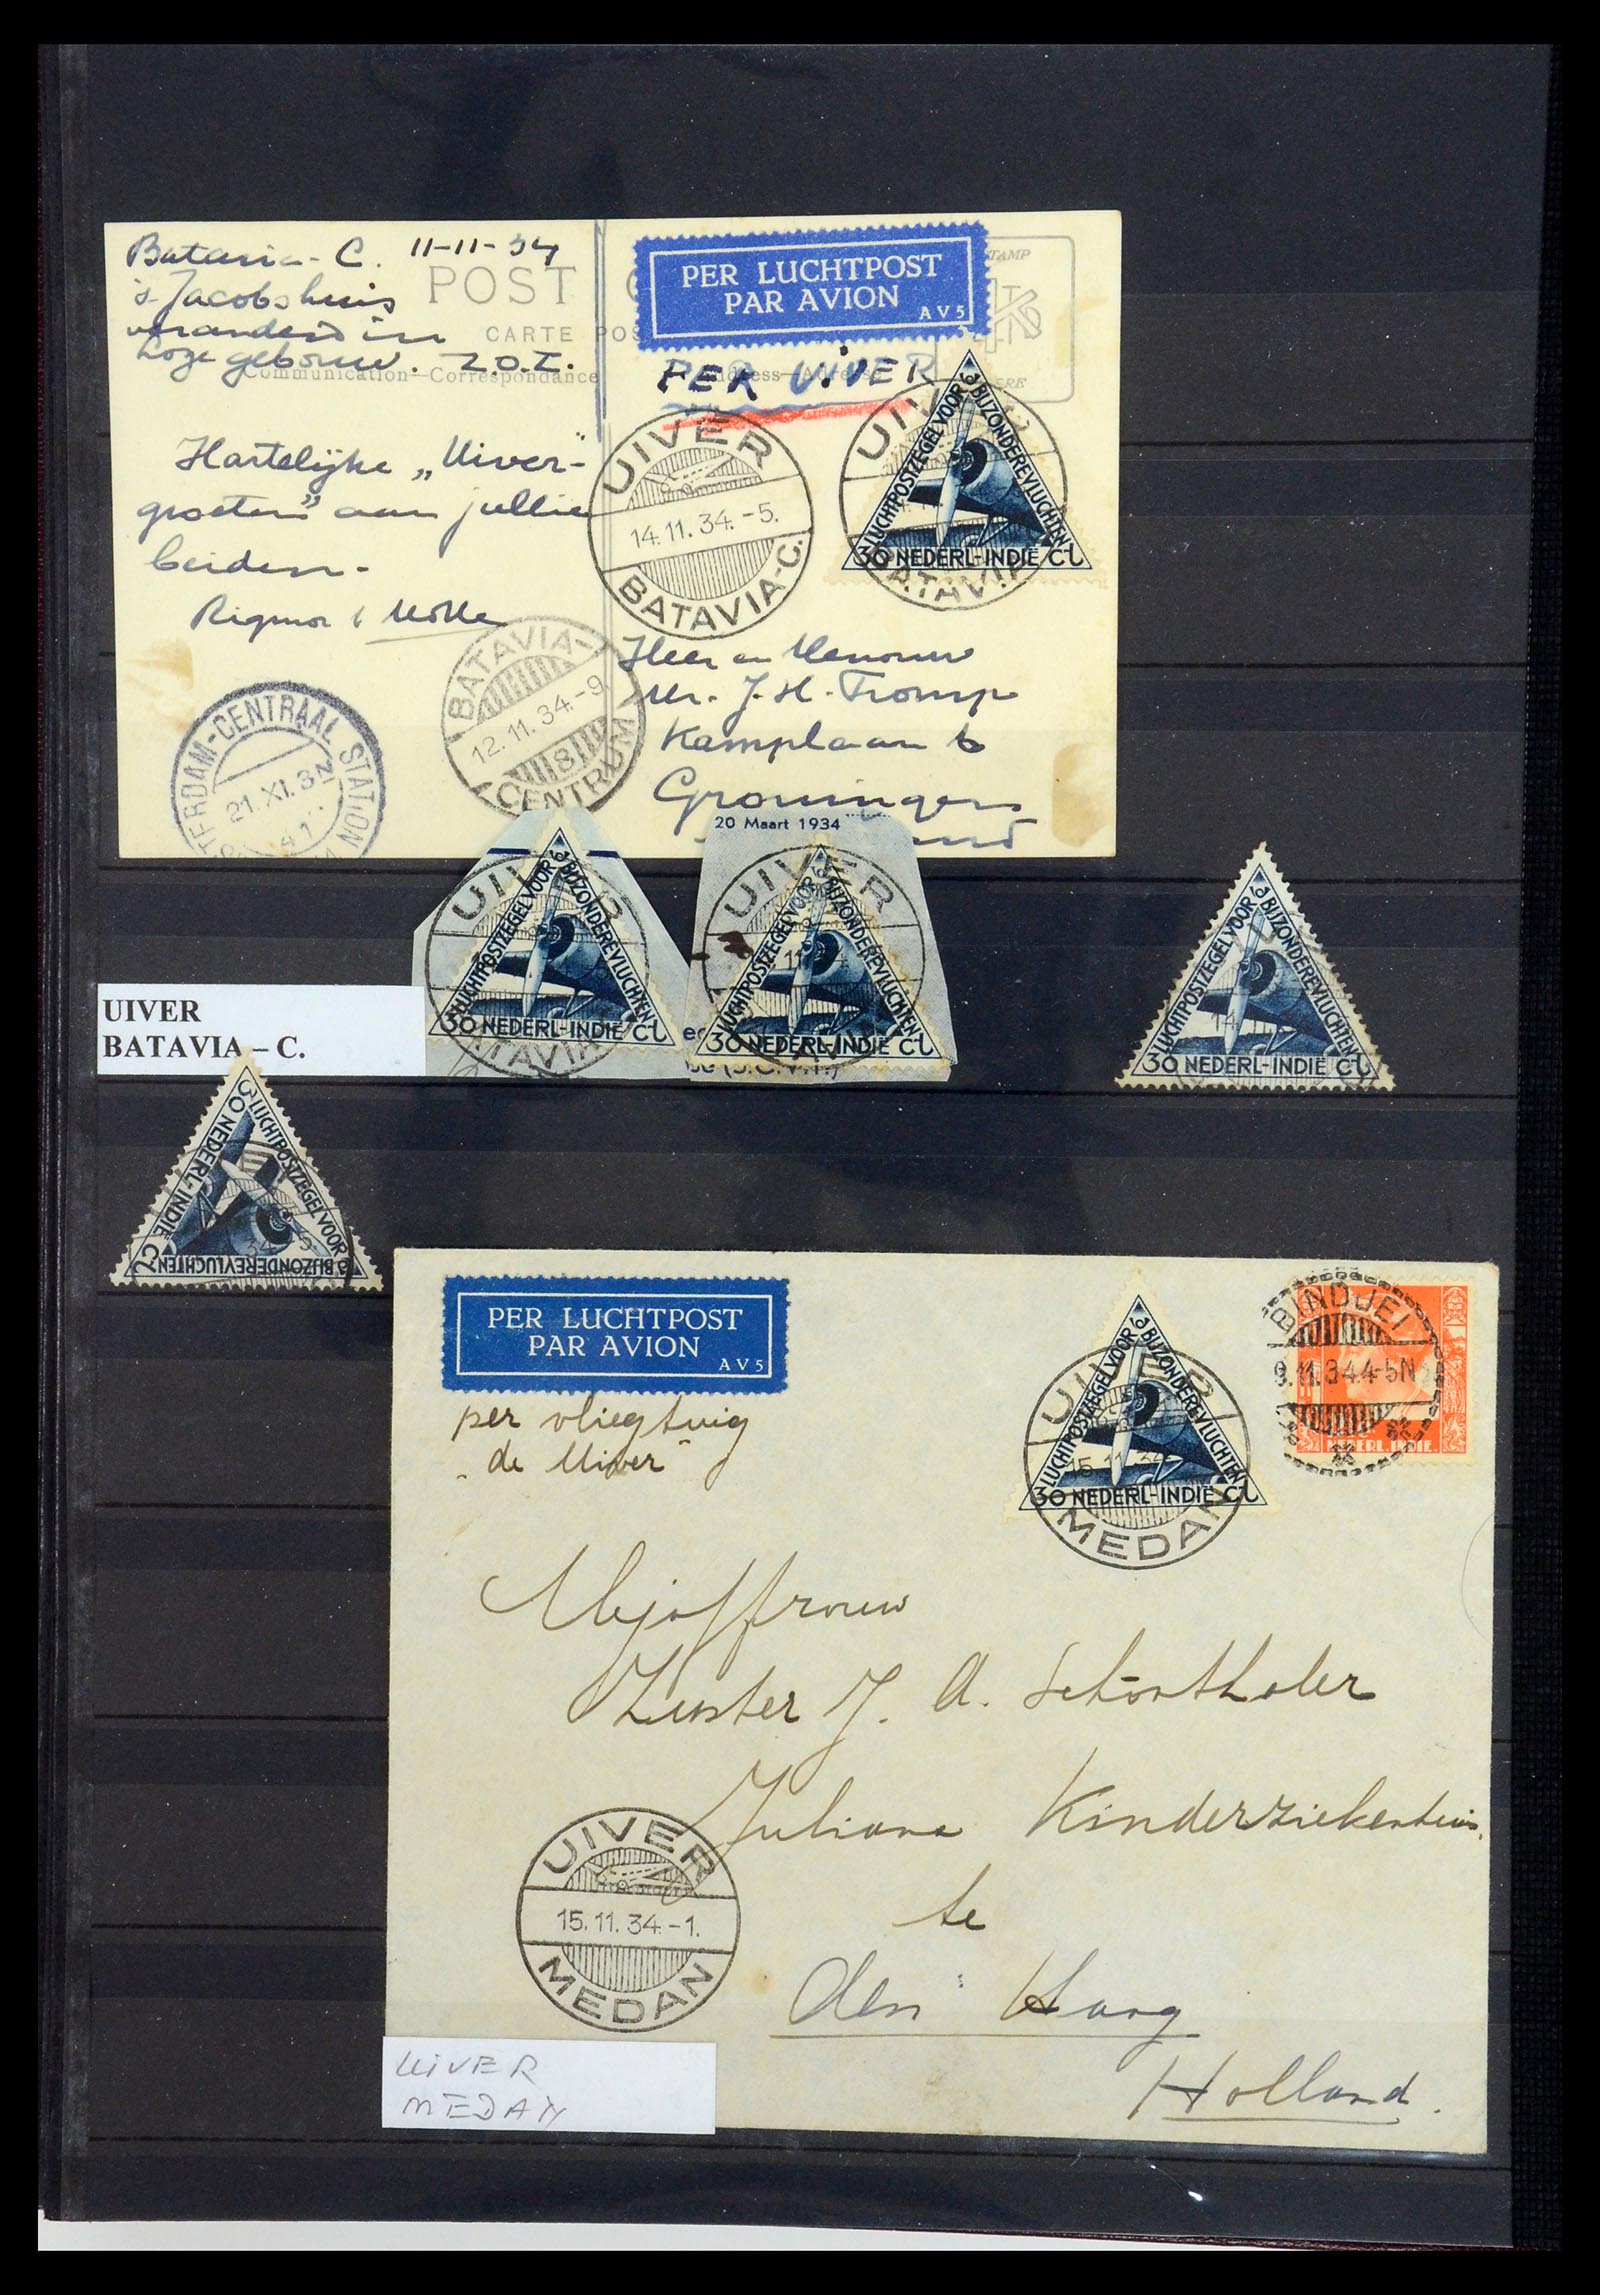 Batavia-C. 11-11-34
's Jacobshuis
veranderd in
loze gebouw. Z.O.Z.
POST C
CARTE POS
Communication—Correspondance
Address—Adresse
STAMP
HERE
PER LUCHTPOST
PAR AVION
AV5
PER UIVER
Hartelijke „Uiver-
groeten" aan jullie
beiden.
UIVER
14.11.34.-5.
BATAVIA-C.
UIVER
BATAVIA
LUCHTPOSTZEGEL VOOR BIJZONDERE VLUCHTEN
30 NEDERL-INDIË Ct
BATAVIA-
12.11.34.-9
8
CENTRUM
STERDAM-CENTRAAL STATION
21.XI.34
Heer en Mevrouw
Mr. J. H. Tromp
Kamplaan 6
Groningen
20 Maart 1934
UIVER
BATAVIA
LUCHTPOSTZEGEL VOOR BIJZONDERE VLUCHTEN
30 NEDERL-INDIË Ct
UIVER
LUCHTPOSTZEGEL VOOR BIJZONDERE VLUCHTEN
30 NEDERL-INDIË Ct
LUCHTPOSTZEGEL VOOR BIJZONDERE VLUCHTEN
30 NEDERL-INDIË Ct
UIVER
BATAVIA – C.
LUCHTPOSTZEGEL VOOR BIJZONDERE VLUCHTEN
30 NEDERL-INDIË Ct
PER LUCHTPOST
PAR AVION
AV5
per vliegtuig
„de Uiver"
UIVER
15.11.34
MEDAN
LUCHTPOSTZEGEL VOOR BIJZONDERE VLUCHTEN
30 NEDERL-INDIË Ct
BINDJEI
9.11.34.4-5N
NEDERL. INDIE.
Mejoffrouw
Zuster J. A. Schönthaler
Juliana Kinderziekenhuis.
te
den Haag
Holland.
UIVER
15.11.34.-1.
MEDAN
UIVER
MEDAN